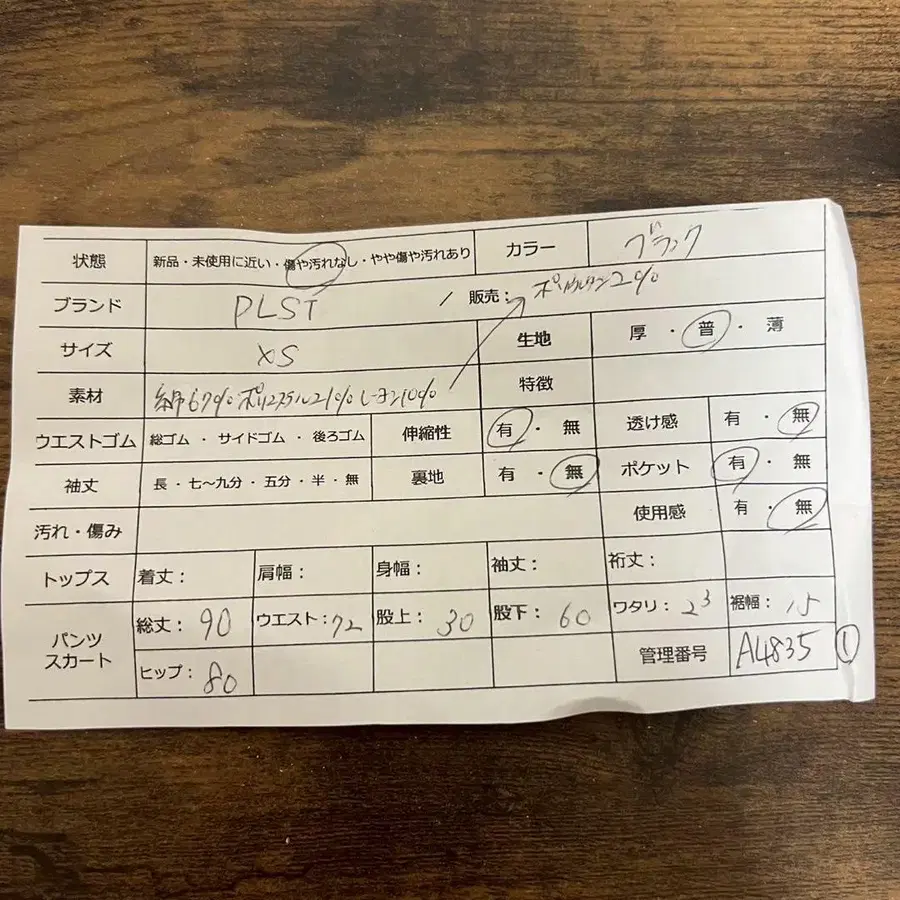 状態 新品・未使用に近い・傷や汚れなし・やや傷や汚れあり カラー ブラック
ブランド PLST / 販売: ポリウレタン2%
サイズ XS 生地 厚・普・薄
素材 綿67%ポリエステル21%レーヨン10% 特徴
ウエストゴム 総ゴム・サイドゴム・後ろゴム 伸縮性 有・無 透け感 有・無
袖丈 長・七〜九分・五分・半・無 裏地 有・無 ポケット 有・無
汚れ・傷み 使用感 有・無
トップス 着丈: 肩幅: 身幅: 袖丈: 裄丈:
パンツ スカート 総丈: 90 ウエスト: 72 股上: 30 股下: 60 ワタリ: 23 裾幅: 15
ヒップ: 80 管理番号 A4835 ①